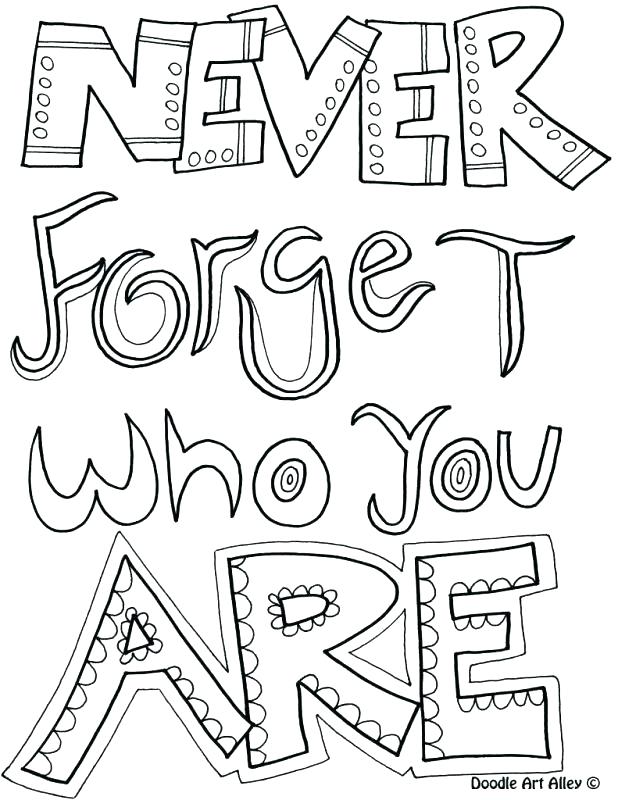 NEVER
Forget
who you
ARE
Doodle Art Alley ©